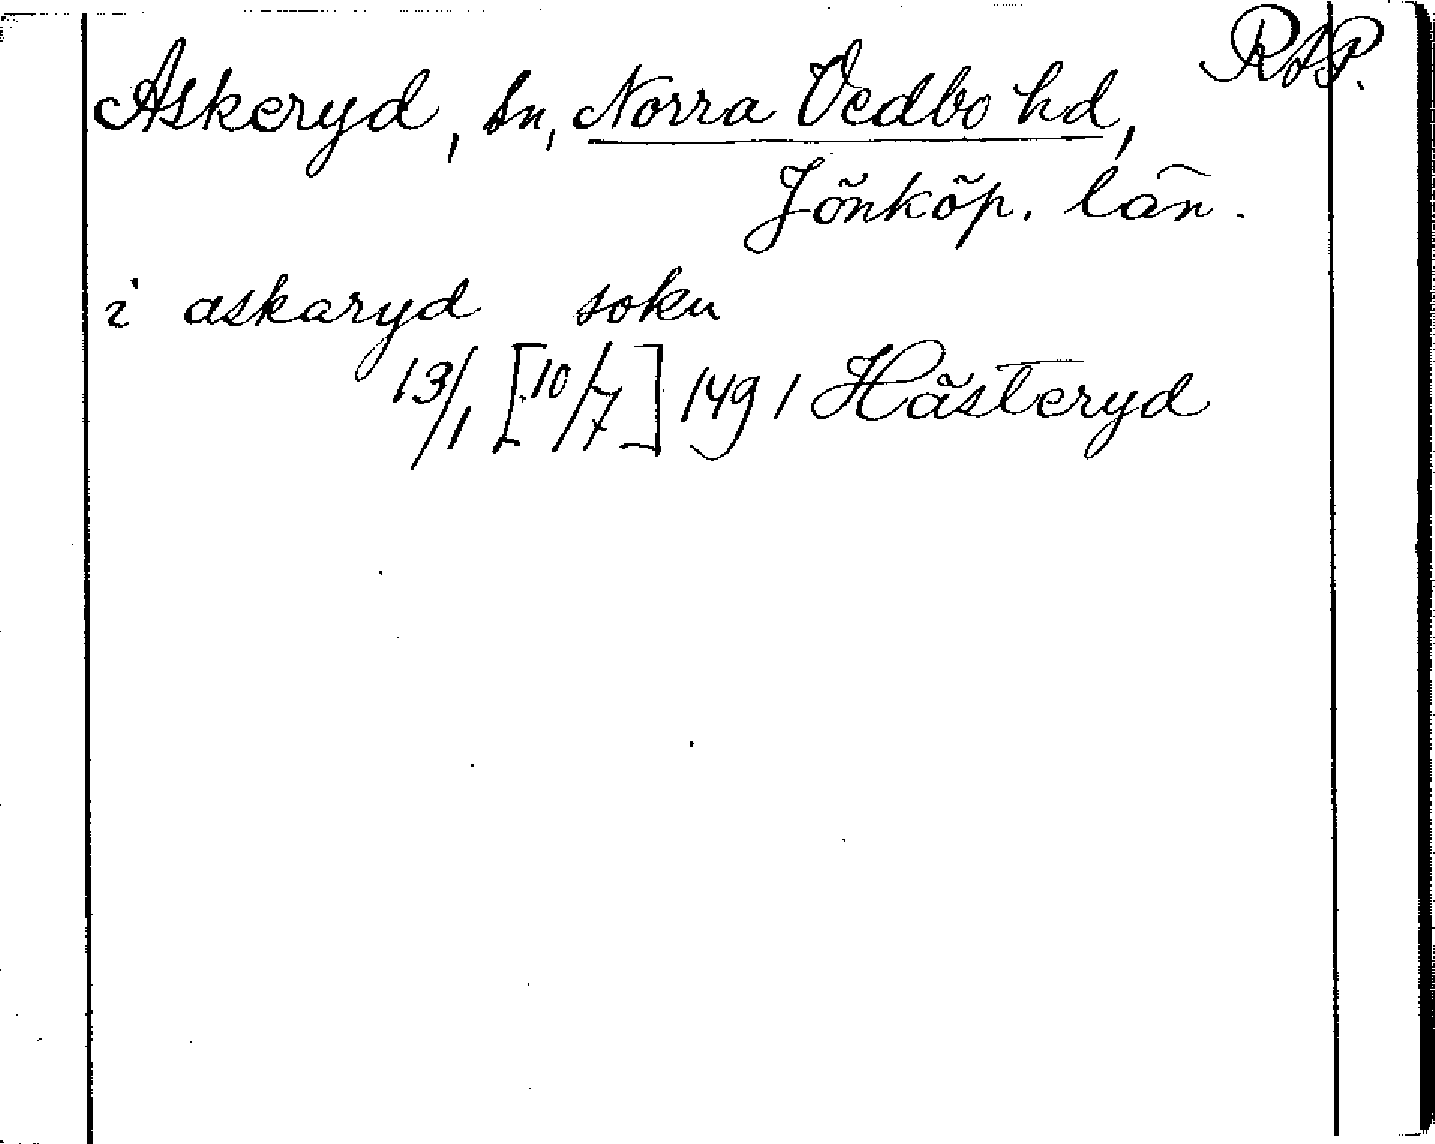 RAP.
Askeryd, sn, Norra Vedbo hd,
Jönköp. län.
i askaryd soku
13/1 [10/7] 1491 Hästeryd